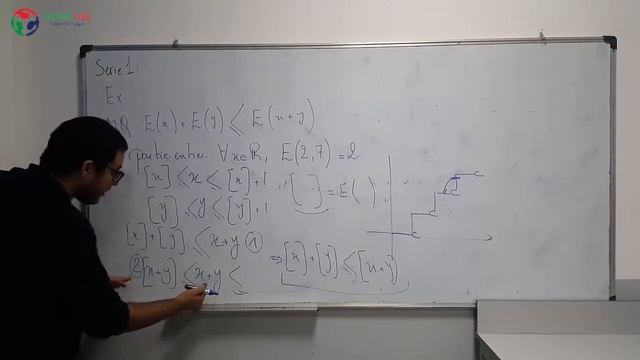 Serie 1:
Ex
MQ. E(x) + E(y) ≤ E(x+y)
partie entier. ∀x∈ℝ, E(2,7) = 2
[x] ≤ x ≤ [x]+1 , [ ] = E( ),
[y] ≤ y ≤ [y]+1
[x]+[y] ≤ x+y ①
② [x+y] ≤ x+y ≤
⇒ [x]+[y] ≤ [x+y]